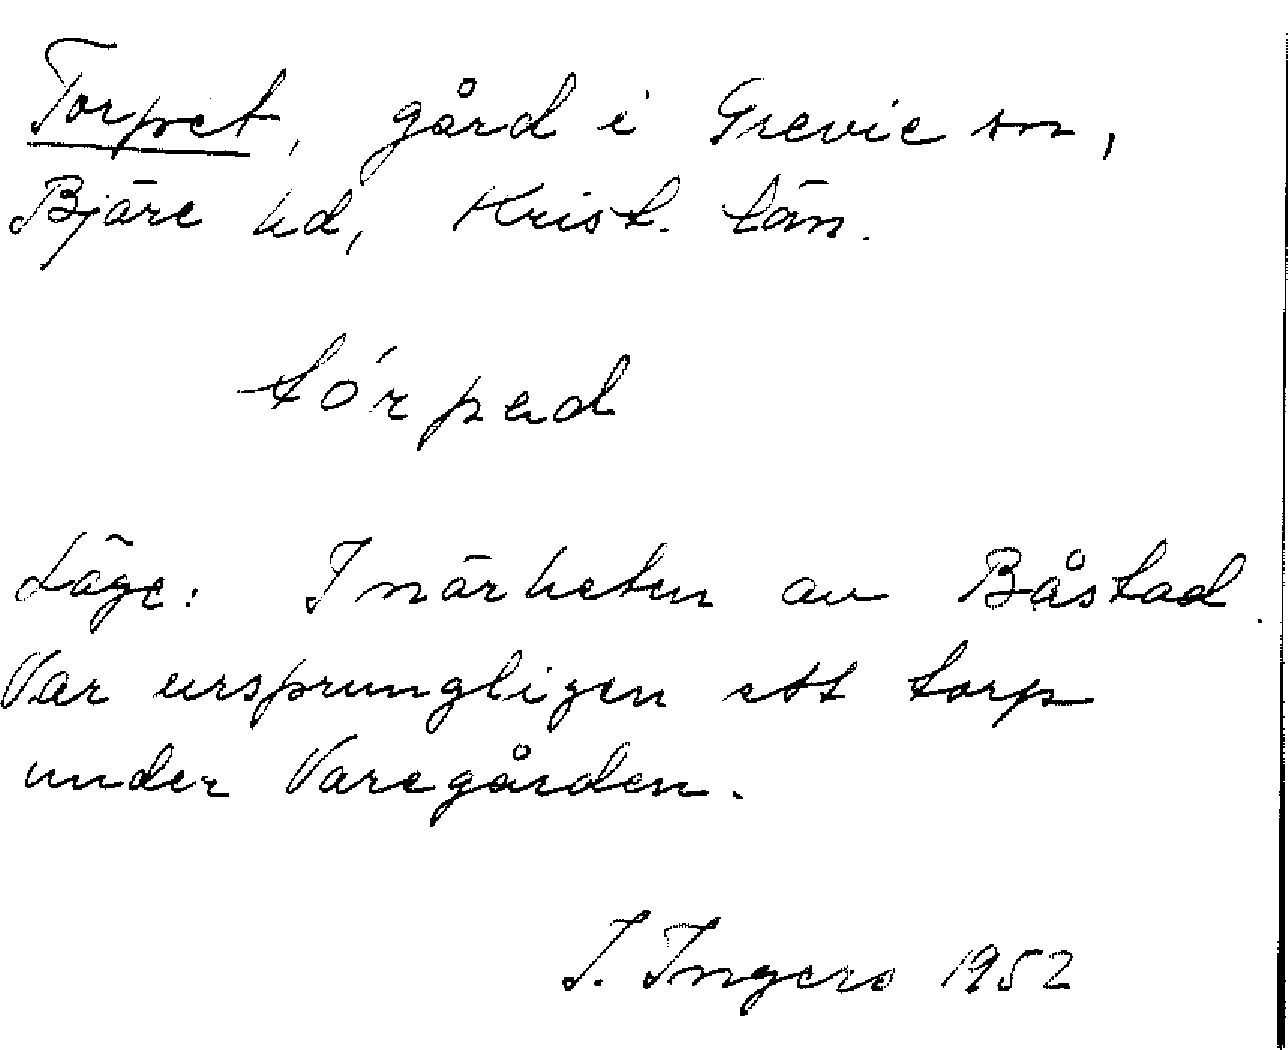 Torpet, gård i Grevie sn,
Bjäre hd, Krist. län.
tórpəd
Läge: I närheten av Båstad.
Var ursprungligen ett torp
under Varegården.
I. Ingers 1952